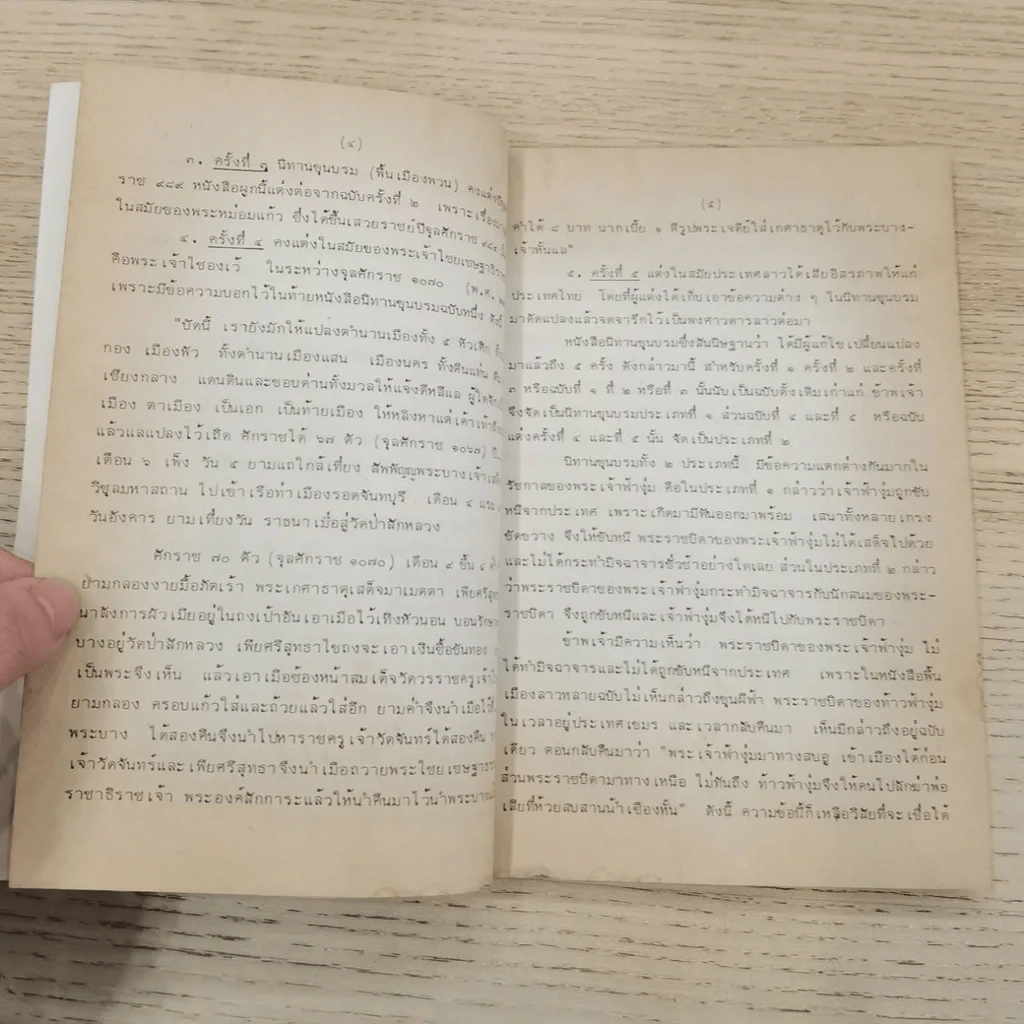 (๔)
๓. ครั้งที่ ๓ นิทานขุนบรม (พื้นเมืองพวน) คงแต่ง
ราช ๙๘๙ หนังสือผูกนี้แต่งต่อจากฉบับครั้งที่ ๒ เพราะเรื่อง
ในสมัยของพระหม่อมแก้ว ซึ่งได้ขึ้นเสวยราชย์ปีจุลศักราช
๔. ครั้งที่ ๔ คงแต่งในสมัยของพระเจ้าไชยเชษฐาธิราช
คือพระเจ้าไชองเว้ ในระหว่างจุลศักราช ๑๐๗๐ (พ.ศ.
เพราะมีข้อความบอกไว้ในท้ายหนังสือนิทานขุนบรมฉบับหนึ่ง ดังนี้
"บัดนี้ เรายังมักให้แปลงตำนานเมืองทั้ง ๕ หัวเศิก
กอง เมืองพัว ทั้งตำนานเมืองแสน เมืองนคร ทั้งดินแท่น
เชียงกลาง แดนดินและขอบด่านทั้งมวลให้แจ้งดีหลีแล ผู้ใด
เมือง ตาเมือง เป็นเอก เป็นท้ายเมือง ให้หลิงหาแต่เค้าเท้าถึง
แล้วแลแปลงไว้เถิด ศักราชได้ ๖๗ ตัว (จุลศักราช ๑๐๖๗)
เดือน ๖ เพ็ง วัน ๕ ยามแถใกล้เที่ยง สัพพัญญูพระบางเจ้า
วิชุลมหาสถาน ไปเข้าเรือท่าเมืองรอดจันทบุรี เดือน ๔ แรม
วันอังคาร ยามเที่ยงวัน ราธนาเมื่อสู่วัดป่าสักหลวง
ศักราช ๗๐ ตัว (จุลศักราช ๑๐๗๐) เดือน ๙ ขึ้น ๔ ค่ำ
ยามกลองงายมื้อภัตเร้า พระเกศาธาตุเสด็จมาเมตตา เพียศรีสุท
นาลังการผัวเมียอยู่ในถงเป้าอันเอาเมือไว้เทิงหัวนอน บอนรักษา
บางอยู่วัดป่าสักหลวง เพียศรีสุทธาไขถงจะเอาเงินซื้อขันทอง
เป็นพระจึงเห็น แล้วเอาเมือช้องหน้าสมเด็จวัดวรราชครูเจ้า
ยามกลอง ครอบแก้วใส่และถ้วยแล้วใส่อีก ยามค่ำจึงนำเมือไว้
พระบาง ได้สองคืนจึงนำไปหาราชครูเจ้าวัดจันทร์ได้สองคืน
เจ้าวัดจันทร์และเพียศรีสุทธาจึงนำเมือถวายพระไชยเชษฐา
ราชาธิราชเจ้า พระองค์สักการะแล้วให้นำคืนมาไว้นำพระบาง
(๕)
คำได้ ๘ บาท นากเบี้ย ๑ ตีรูปพระเจดีย์ใส่เกศาธาตุไว้กับพระบาง-
เจ้าหั้นแล"
๕. ครั้งที่ ๕ แต่งในสมัยประเทศลาวได้เสียอิสรภาพให้แก่
ประเทศไทย โดยที่ผู้แต่งได้เก็บเอาข้อความต่าง ๆ ในนิทานขุนบรม
มาดัดแปลงแล้วจดจารึกไว้เป็นพงศาวดารลาวต่อมา
หนังสือนิทานขุนบรมซึ่งสันนิษฐานว่า ได้มีผู้แก้ไขเปลี่ยนแปลง
มาแล้วถึง ๕ ครั้ง ดังกล่าวมานี้ สำหรับครั้งที่ ๑ ครั้งที่ ๒ และครั้งที่
๓ หรือฉบับที่ ๑ ที่ ๒ หรือที่ ๓ นั้นนับเป็นฉบับดั้งเดิมเก่าแก่ ข้าพเจ้า
จึงจัดเป็นนิทานขุนบรมประเภทที่ ๑ ส่วนฉบับที่ ๔ และที่ ๕ หรือฉบับ
แต่งครั้งที่ ๔ และที่ ๕ นั้น จัดเป็นประเภทที่ ๒
นิทานขุนบรมทั้ง ๒ ประเภทนี้ มีข้อความแตกต่างกันมากใน
รัชกาลของพระเจ้าฟ้างุ่ม คือในประเภทที่ ๑ กล่าวว่าเจ้าฟ้างุ่มถูกขับ
หนีจากประเทศ เพราะเกิดมามีฟันออกมาพร้อม เสนาทั้งหลายเกรง
ขัดขวาง จึงให้ขับหนี พระราชบิดาของพระเจ้าฟ้างุ่มไม่ได้เสด็จไปด้วย
และไม่ได้กระทำมิจฉาจารชั่วช้าอย่างใดเลย ส่วนในประเภทที่ ๒ กล่าว
ว่าพระราชบิดาของพระเจ้าฟ้างุ่มกระทำมิจฉาจารกับนักสนมของพระ-
ราชบิดา จึงถูกขับหนีและเจ้าฟ้างุ่มจึงได้หนีไปกับพระราชบิดา
ข้าพเจ้ามีความเห็นว่า พระราชบิดาของพระเจ้าฟ้างุ่ม ไม่
ได้ทำมิจฉาจารและไม่ได้ถูกขับหนีจากประเทศ เพราะในหนังสือพื้น
เมืองลาวหลายฉบับไม่เห็นกล่าวถึงขุนผีฟ้า พระราชบิดาของท้าวฟ้างุ่ม
ในเวลาอยู่ประเทศเขมร และเวลากลับคืนมา เห็นมีกล่าวถึงอยู่ฉบับ
เดียว ตอนกลับคืนมาว่า "พระเจ้าฟ้างุ่มมาทางสบอู เข้าเมืองได้ก่อน
ส่วนพระราชบิดามาทางเหนือ ไม่ทันถึง ท้าวฟ้างุ่มจึงให้คนไปลักฆ่าพ่อ
เสียที่ห้วยสบสานน้ำเชืองหั้น" ดังนี้ ความข้อนี้ก็เหลือวิสัยที่จะเชื่อได้